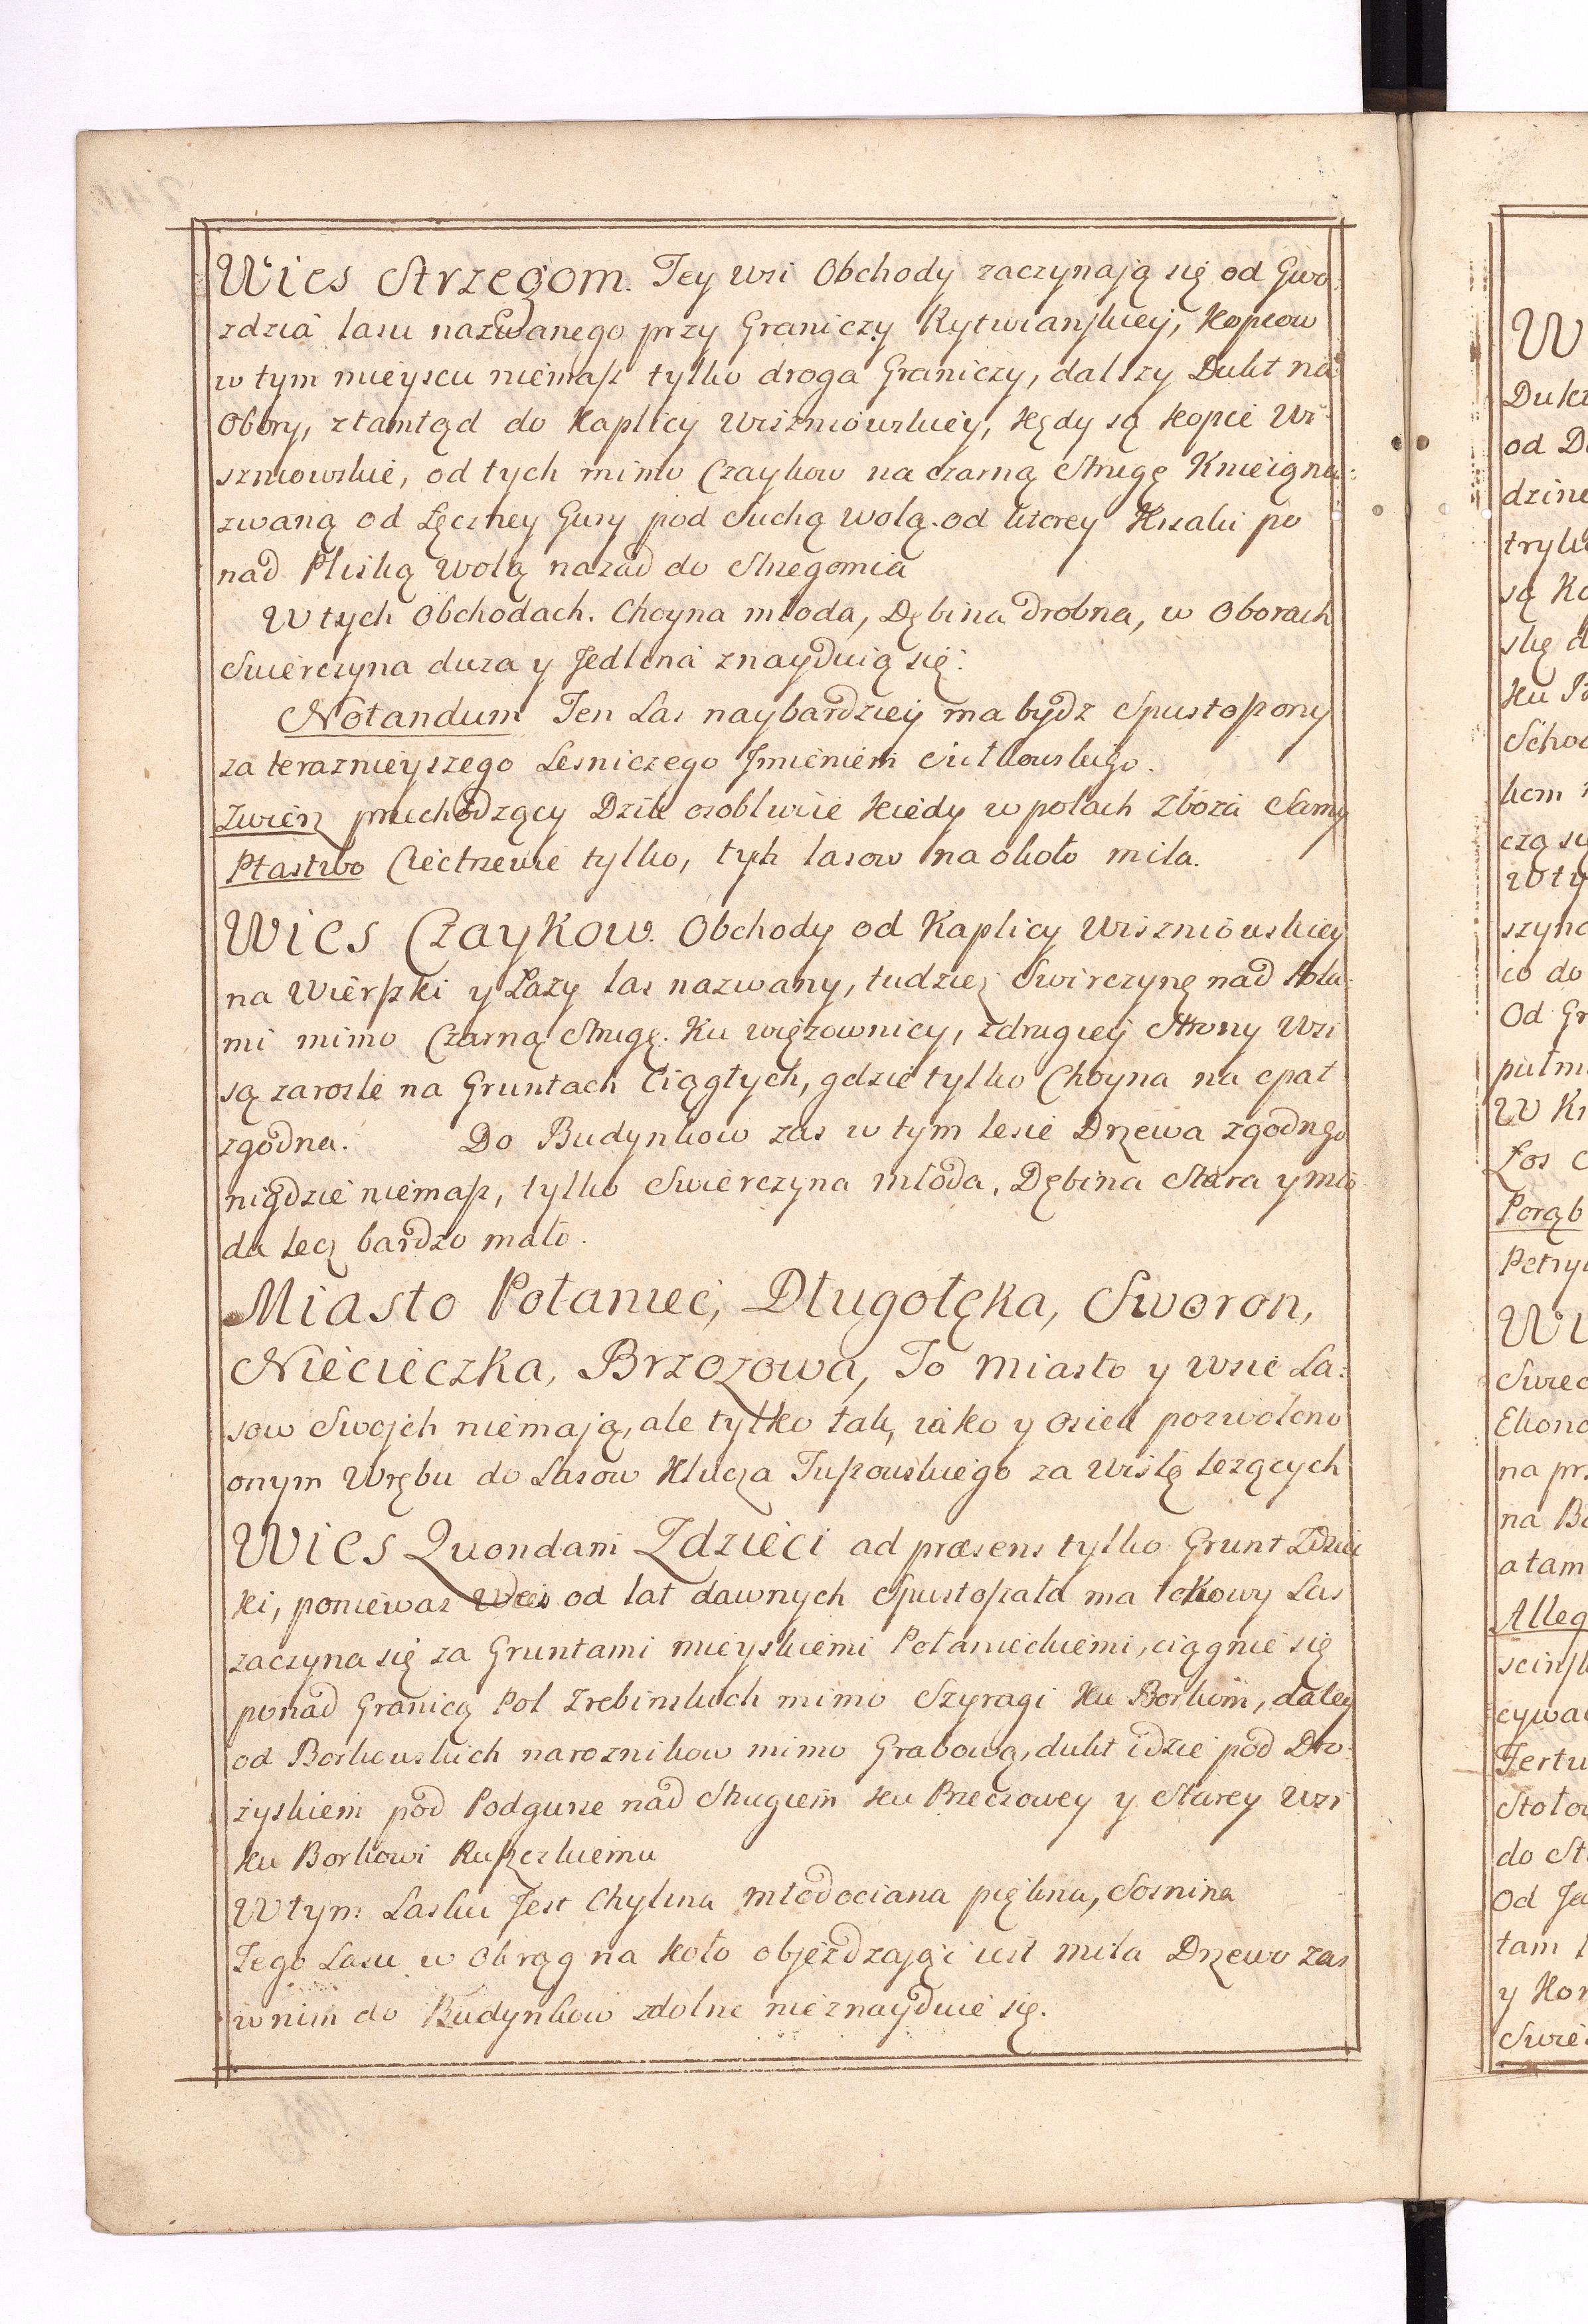 Wies Strzegom. Tey wsi Obchody zaczynają się od Gwo:
zdzia lasu nazwanego przy Graniczy Rytwianskiey, Kopcow
w tym mieyscu niemasz tylko droga Graniczy, dalszy Dukt na
Obory, ztamtąd do Kaplicy Wiszniowskiey, kędy są kopce Wi:
szniowskie, od tych mimo Czaykow na czarną Strugę Knieię na:
zwaną od Łęczney Gury pod Suchą Wolą. od ktorey Krzaki po
nad Pliską Wolą nazad do Strzegomia
W tych Obchodach. Choyna młoda, Dębina drobna, w Oborach
Swierczyna duza y Jedlina znayduią się.
Notandum Ten Las naybardziey ma bydz Spustoszony
za teraznieyszego Lesniczego Jmieniem
Zwierz przechodzący Dzik osobliwie kiedy w polach Zboza Sarny
Ptastwo Cietrzewie tylko, tych lasow na około mila.
Wies Czaykow. Obchody od Kaplicy Wiszniowskiey
na Wierszki y Łazy las nazwany, tudziez Swirczynę nad Pola:
mi mimo Czarną Strugę. Ku więzownicy, z drugiey Strony Wsi
są zarosle na Gruntach Ciągłych, gdzie tylko Choyna na opał
zgodna. Do Budynkow zas w tym lesie Drzewa zgodnego
nigdzie niemasz, tylko Swierczyna młoda, Dębina Stara y mło:
da lecz bardzo mało.
Miasto Połaniec, Długołęka, Sworon,
Niecieczka, Brzozowa, To Miasto y Wsie La:
sow Swojch niemają, ale tylko tak, iako y Osiek pozwolono
onym Wrębu do Lasow Klucza Tuszowskiego za Wisłą lezących
Wies Quondam Zdzieci ad præsens tylko Grunt Zdziec
ki, poniewaz Wies od lat dawnych Spustoszała ma takowy Las
zaczyna się za Gruntami mieyskiemi Połanieckiemi, ciągnie się
ponad Granicą Pol Zrebinskich mimo Szyragi ku Borkom, daley
od Borkowskich naroznikow mimo Grabową, dukt idzie pod Dro:
zyskiem pod Podgurze nad Strugiem ku Przeczowey y Starey Wsi
ku Borkowi Ruszczkiemu
W tym Lasku Jest Chylina młodociana piękna, Sosnina
Tego Lasu w Okrąg na koło objeżdzając iest mila Drzewo zas
w nim do Budynkow zdolne nieznayduie się.